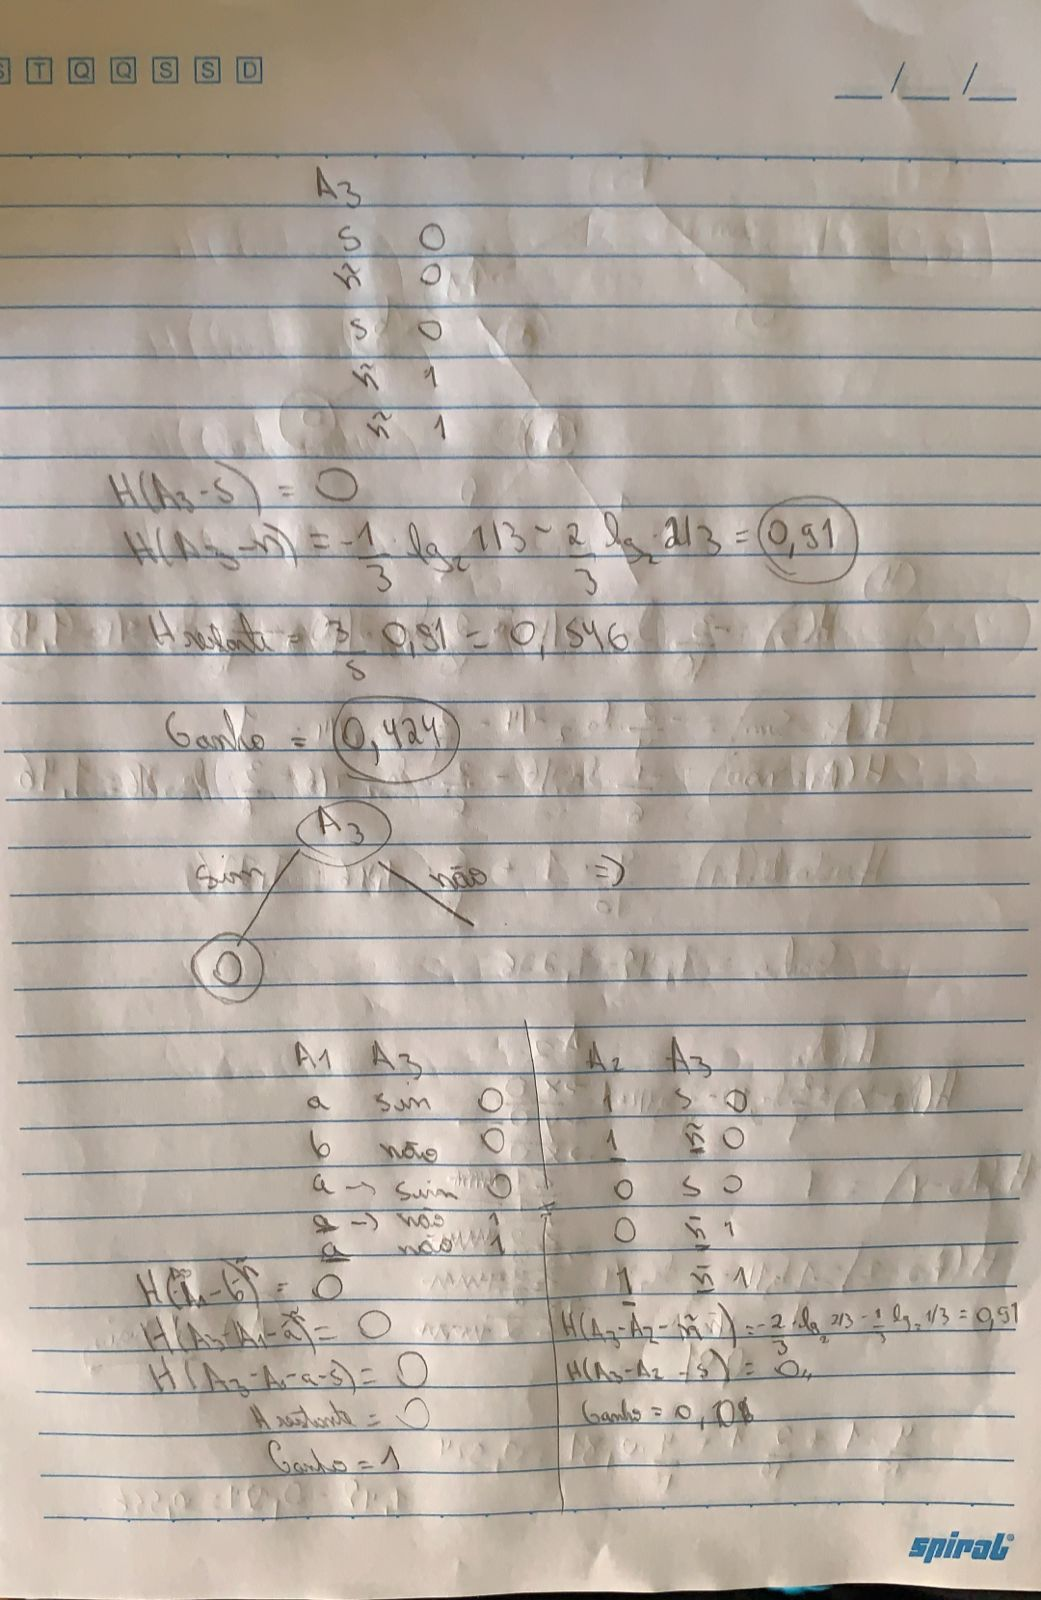 S T Q Q S S D
__/__/__
A3
S 0
ñ 0
S 0
ñ 1
ñ 1
H(A3-S) = 0
H(A3-ñ) = -1/3 · lg₂ 1/3 - 2/3 lg₂ · 2/3 = 0,91
H restante = 3/5 · 0,91 = 0,1546
Ganho = 0,424
A3
Sim não =)
0
A1 A3
a sim 0
b não 0
a → sim 0
a → não 1
a não 1
H(A1-b) = 0
H(A3-A1-a) = 0
H(A3-A1-a-S) = 0
H restante = 0
Ganho = 1
A2 A3
1 S 0
1 ñ 0
0 S 0
0 ñ 1
1 ñ 1
H(A3-A2-ñ) = -2/3 · lg₂ 2/3 - 1/3 lg₂ 1/3 = 0,91
H(A3-A2-S) = 0,,
Ganho = 0,
spiral